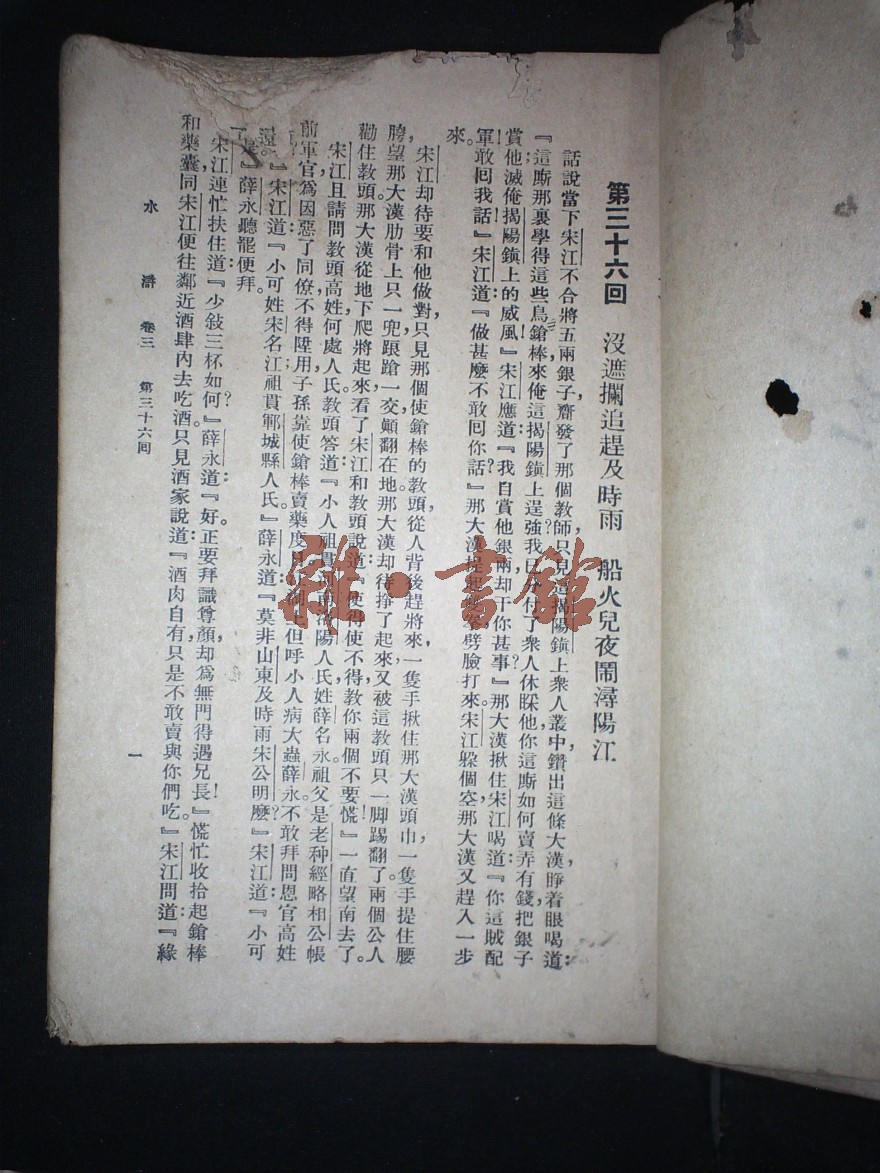 第三十六回　沒遮攔追趕及時雨　船火兒夜鬧潯陽江
話說當下宋江不合將五兩銀子齎發了那個教師，只見這揭陽鎭上衆人叢中鑽出這條大漢，睜着眼喝道：
『這厮那裏學得這些鳥鎗棒，來俺這揭陽鎭上逞強！我已分付了衆人休睬他，你這厮如何賣弄有錢，把銀子
賞他，滅俺揭陽鎭上的威風！』宋江應道：『我自賞他銀兩，却干你甚事？』那大漢揪住宋江喝道：『你這賊配
軍！敢囘我話！』宋江道：『做甚麽不敢囘你話？』那大漢提起雙拳，劈臉打來。宋江躲個空，那大漢又趕入一步
來。
宋江却待要和他做對，只見那個使鎗棒的教頭從人背後趕將來，一隻手揪住那大漢頭巾，一隻手提住腰
胯，望那大漢肋骨上只一兜，踉蹌一交，顚翻在地。那大漢却待掙了起來，又被這教頭只一脚踢翻了。兩個公人
勸住教頭。那大漢從地下爬將起來，看了宋江和教頭說道：『使得使不得，教你兩個不要慌！』一直望南去了。
宋江且請問教頭高姓，何處人氏。教頭答道：『小人祖貫河南洛陽人氏，姓薛，名永。祖父是老种經略相公帳
前軍官，爲因惡了同僚，不得陞用，子孫靠使鎗棒賣藥度日。江湖上但呼小人病大蟲薛永。不敢拜問恩官高姓
宋江道：『小可姓宋，名江；祖貫鄆城縣人氏。』薛永道：『莫非山東及時雨宋公明麽？』宋江道：『小可
是。』薛永聽罷便拜。
宋江連忙扶住道：『少敍三杯如何？』薛永道：『好。正要拜識尊顏，却爲無門得遇兄長！』慌忙收拾起鎗棒
和藥囊，同宋江便往鄰近酒肆內去吃酒。只見酒家說道：『酒肉自有，只是不敢賣與你們吃。』宋江問道：『緣
水　滸　卷三　第三十六囘　一
雜·書館